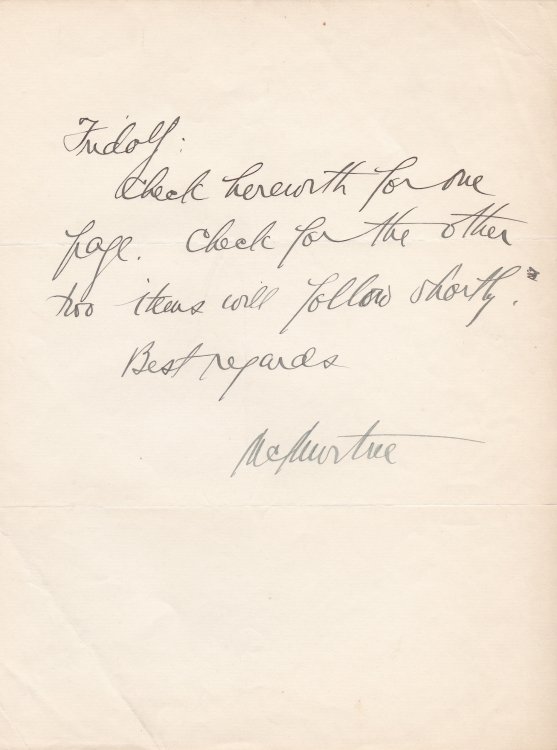 Fridolf:
Check herewith for one
page. Check for the other
two items will follow shortly.
Best regards
McMurtrie